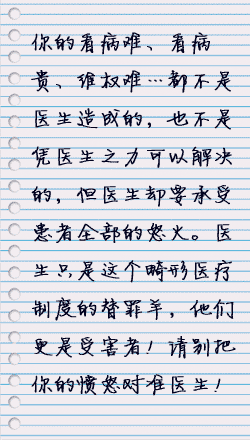 你的看病难、看病
贵、维权难…都不是
医生造成的，也不是
凭医生之力可以解决
的，但医生却要承受
患者全部的怒火。医
生只是这个畸形医疗
制度的替罪羊，他们
更是受害者！请别把
你的愤怒对准医生！